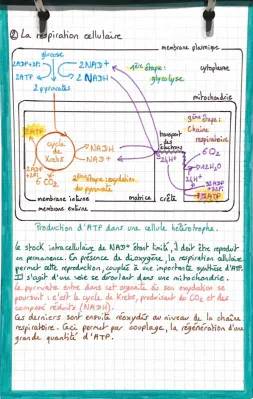 ② La respiration cellulaire
membrane plasmique
glucose
2ADP+2Pi
2ATP
2NAD+
2NADH
2 pyruvates
1ère étape :
glycolyse
cytoplasme
mitochondrie
3ème étape :
chaîne
respiratoire
2ATP
cycle
de
Krebs
NADH
NAD+
6 CO2
2ème étape : oxydation
du pyruvate
transport
des
électrons
24H+
12H2O
membrane interne
matrice
crête
membrane externe
Production d'ATP dans une cellule hétérotrophe.
Le stock intracellulaire de NAD+ étant limité, il doit être reproduit
en permanence. En présence de dioxygène, la respiration cellulaire
permet cette reproduction, couplée à une importante synthèse d'ATP.
Il s'agit d'une voie se déroulant dans une mitochondrie.
Le pyruvate entre dans cet organite où son oxydation se
poursuit : c'est le cycle de Krebs, produisant du CO2 et des
composés réduits (NADH).
Ces derniers sont ensuite réoxydés au niveau de la chaîne
respiratoire. Ceci permet par couplage, la régénération d'une
grande quantité d'ATP.